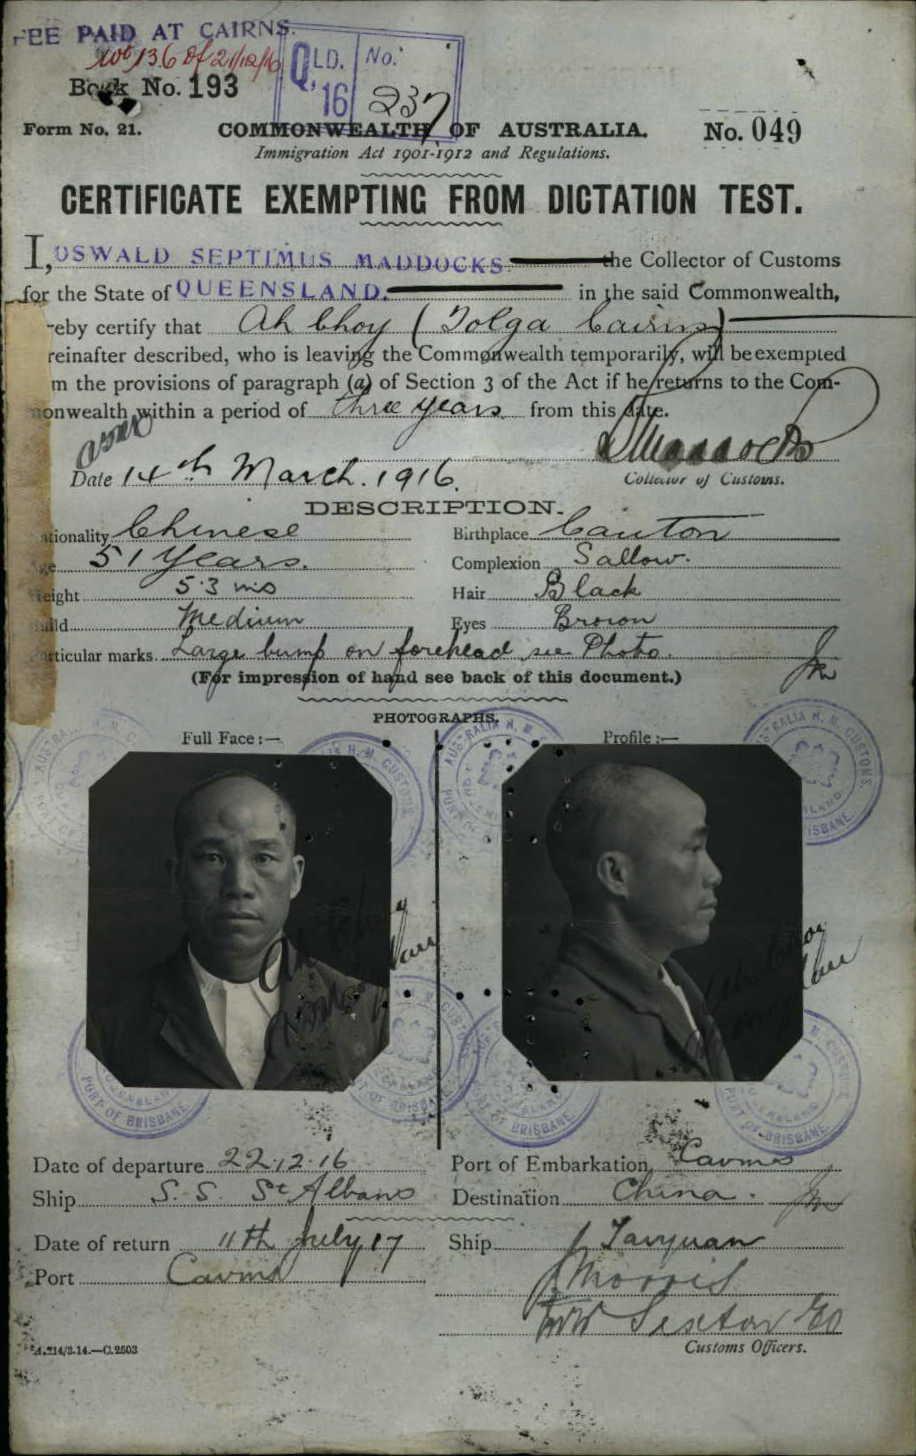 FEE PAID AT CAIRNS.
136 of 21/12/16
Book No. 193
QLD. No.
16 237
Form No. 21. COMMONWEALTH OF AUSTRALIA. No. 049
Immigration Act 1901-1912 and Regulations.
CERTIFICATE EXEMPTING FROM DICTATION TEST.
I, OSWALD SEPTIMUS MADDOCKS the Collector of Customs
for the State of QUEENSLAND. in the said Commonwealth,
reby certify that Ah Choy (Tolga Cairns)
reinafter described, who is leaving the Commonwealth temporarily, will be exempted
m the provisions of paragraph (a) of Section 3 of the Act if he returns to the Com-
monwealth within a period of three years from this date.
Date 14th March. 1916. Collector of Customs.
DESCRIPTION.
ationality Chinese Birthplace Canton
ge 51 Years. Complexion Sallow.
eight 5.3 Hair Black
uild Medium Eyes Brown
articular marks Large bump on forehead see Photo.
(For impression of hand see back of this document.)
PHOTOGRAPHS.
Full Face :— Profile :—
Ah Choy
Ah Choy
PORT OF BRISBANE
Date of departure 22.12.16 Port of Embarkation Cairns
Ship S. S. St Albans Destination China.
Date of return 11th July 17 Ship Taiyuan
Port Cairns J Morris
Sexton
Customs Officers.
A.214/3.14.—C.2503